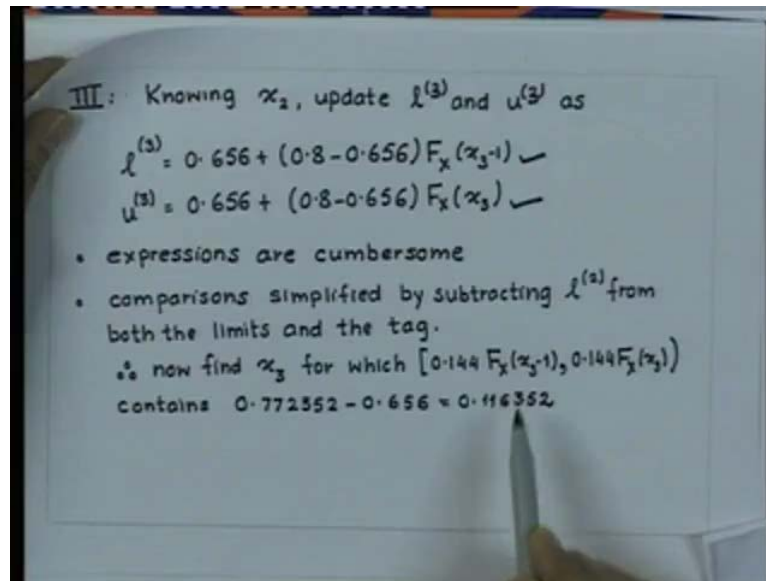 III: Knowing x₂, update l⁽³⁾ and u⁽³⁾ as
l⁽³⁾ = 0.656 + (0.8-0.656) Fₓ(x₃-1) ✓
u⁽³⁾ = 0.656 + (0.8-0.656) Fₓ(x₃) ✓
• expressions are cumbersome
• comparisons simplified by subtracting l⁽²⁾ from
both the limits and the tag.
∴ now find x₃ for which [0.144 Fₓ(x₃-1), 0.144 Fₓ(x₃))
contains 0.772352 - 0.656 = 0.116352